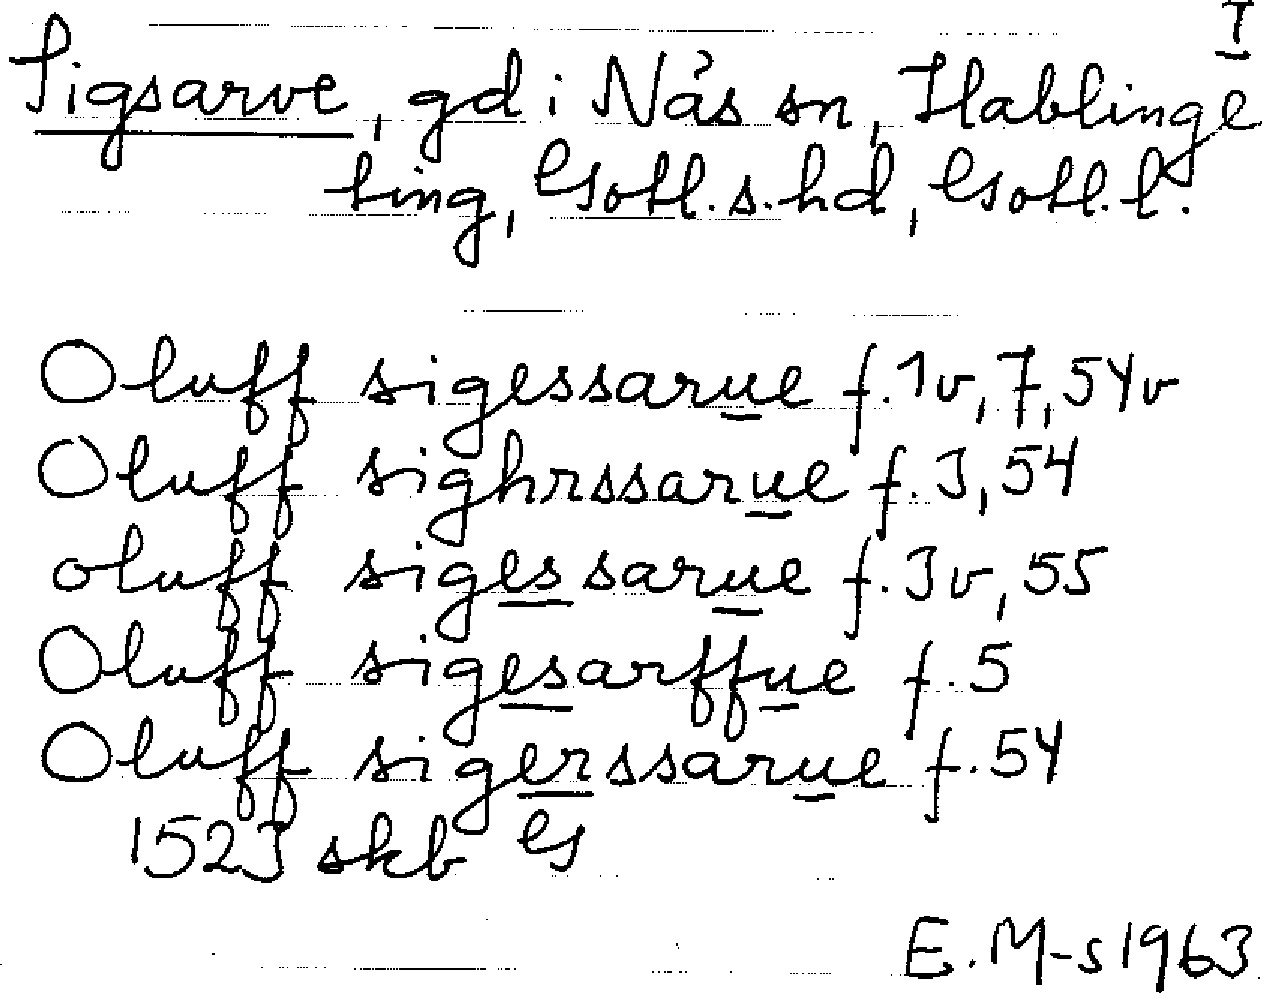 I
Sigsarve, gd i Näs sn, Hablinge
ting, Gotl. s. hd, Gotl. l.
Oluff sigessarue f. 1v, 7, 54v
Oluff sighrssarue f. 3, 54
oluff siges sarue f. 3v, 55
Oluff sigesarffue f. 5
Oluff sigerssarue f. 54
1523 skb G
E. M-s 1963